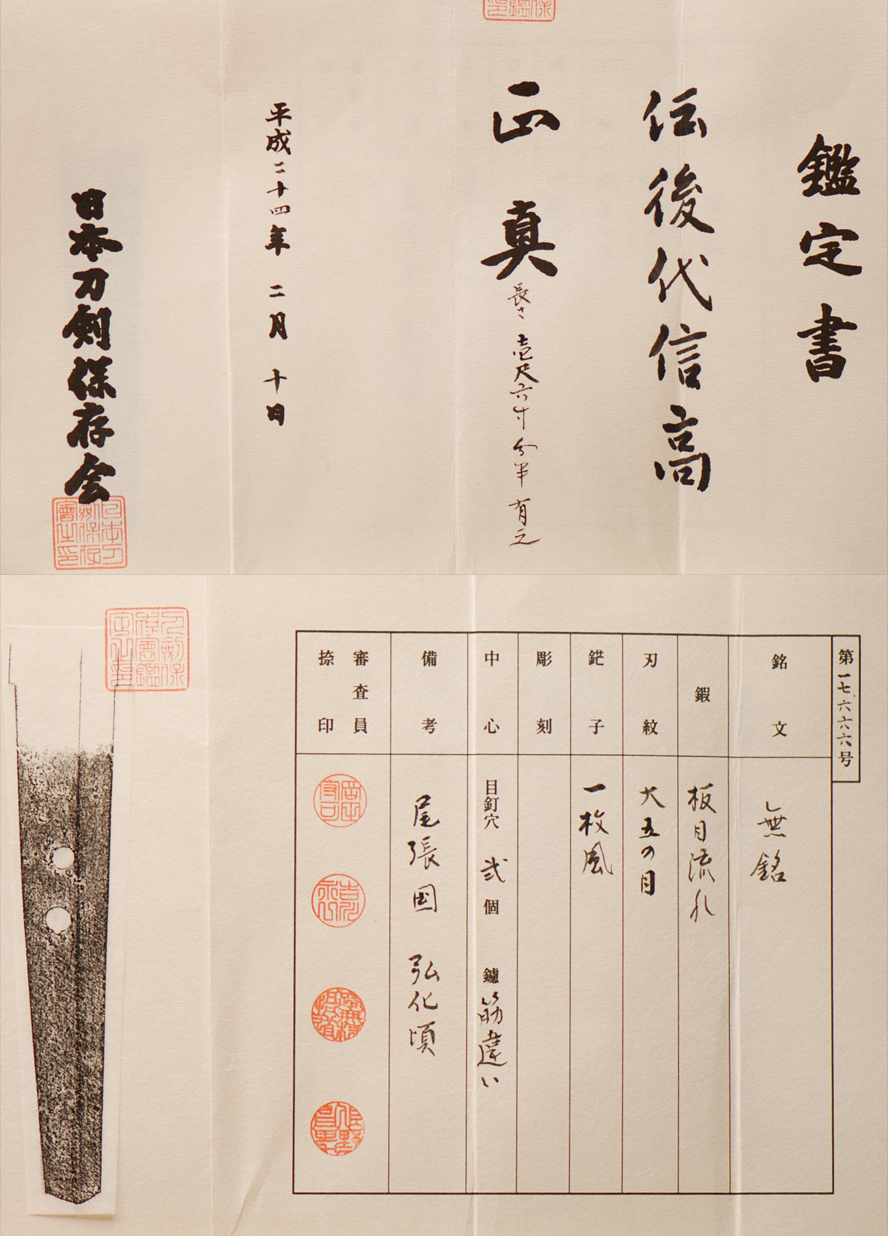 鑑定書
伝後代信高
正真
長さ壱尺六寸 分半有之
平成二十四年 二月 十日
日本刀剣保存会
第一七六六六号
銘文
無銘
鍜
板目流れ
刃紋
大五の目
鋩子
一枚風
彫刻
中心
目釘穴 弐個 鑢 筋違い
備考
尾張国 弘化頃
審査員
捺印